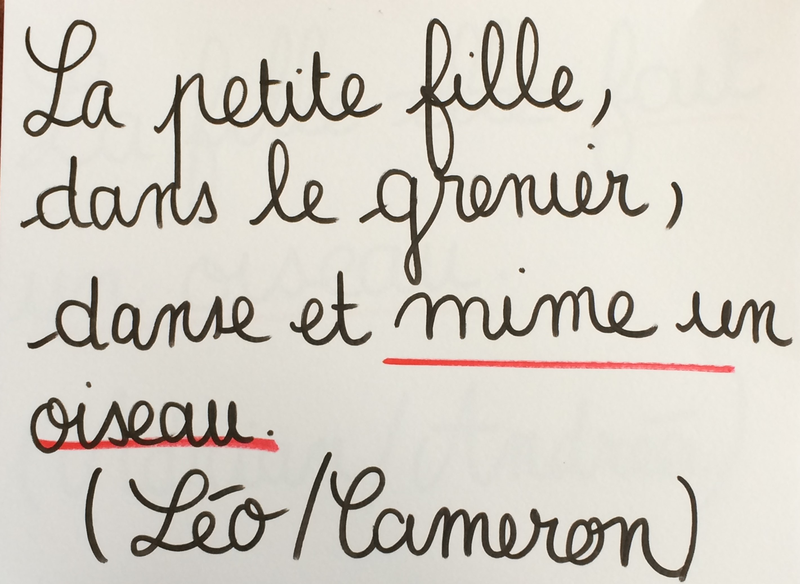 La petite fille,
dans le grenier,
danse et mime un
oiseau.
(Léo/Cameron)